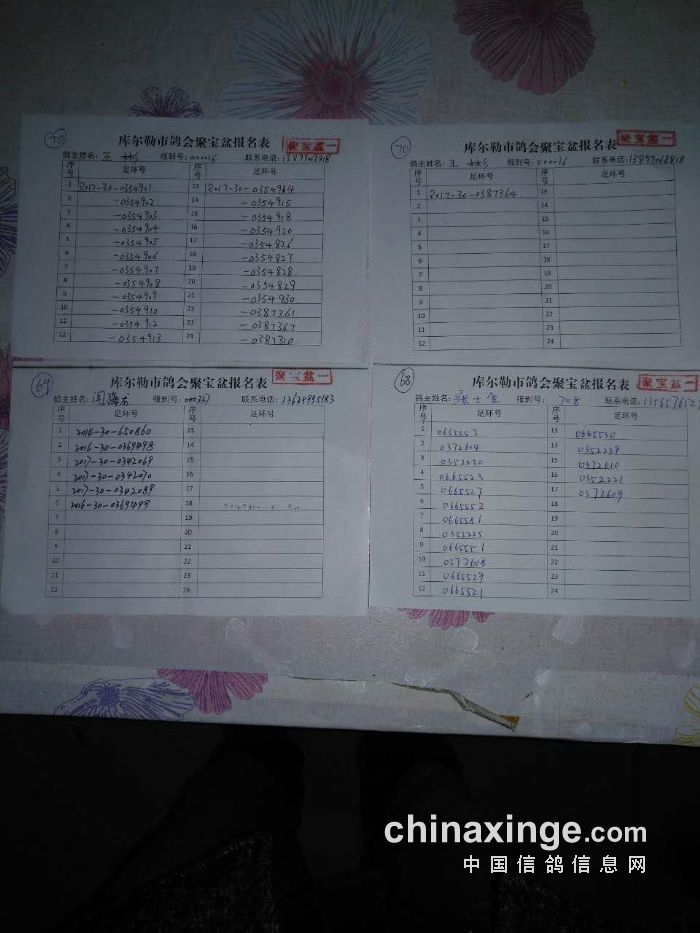 70
库尔勒市鸽会聚宝盆报名表
聚宝盆一
鸽主姓名: 王 报到号: 000016 联系电话:
序号 足环号 序号 足环号
1 2017-30-0354901 13 2017-30-0354964
2 -0354902 14 -0354915
3 -0354903 15 -0354918
4 -0354904 16 -0354920
5 -0354905 17 -0354826
6 -0354906 18 -0354827
7 -0354907 19 -0354828
8 -0354908 20 -0354829
9 -0354909 21 -0354930
10 -0354910 22 -0387361
11 -0354912 23 -0387367
12 -0354913 24 -0387310
70
库尔勒市鸽会聚宝盆报名表
聚宝盆一
鸽主姓名: 王 报到号: 000016 联系电话:
序号 足环号 序号 足环号
1 2017-30-0387364 13
2 14
3 15
4 16
5 17
6 18
7 19
8 20
9 21
10 22
11 23
12 24
69
库尔勒市鸽会聚宝盆报名表
聚宝盆一
鸽主姓名: 报到号: 联系电话:
序号 足环号 序号 足环号
1 2016-30-650860 13
2 2016-30-0369498 14
3 2017-30-0342069 15
4 2017-30-0342070 16
5 2017-30-0342089 17
6 2016-30-0369499 18
7 19
8 20
9 21
10 22
11 23
12 24
68
库尔勒市鸽会聚宝盆报名表
聚宝盆一
鸽主姓名: 张士金 报到号: 708 联系电话:
序号 足环号 序号 足环号
1 0665553 13 0665530
2 0372604 14 0352229
3 0352230 15 0372610
4 0665523 16 0352221
5 0665527 17 0372609
6 0665552 18
7 0665581 19
8 0352225 20
9 0665551 21
10 0372608 22
11 0665529 23
12 0665521 24
chinaxinge.com
中国信鸽信息网